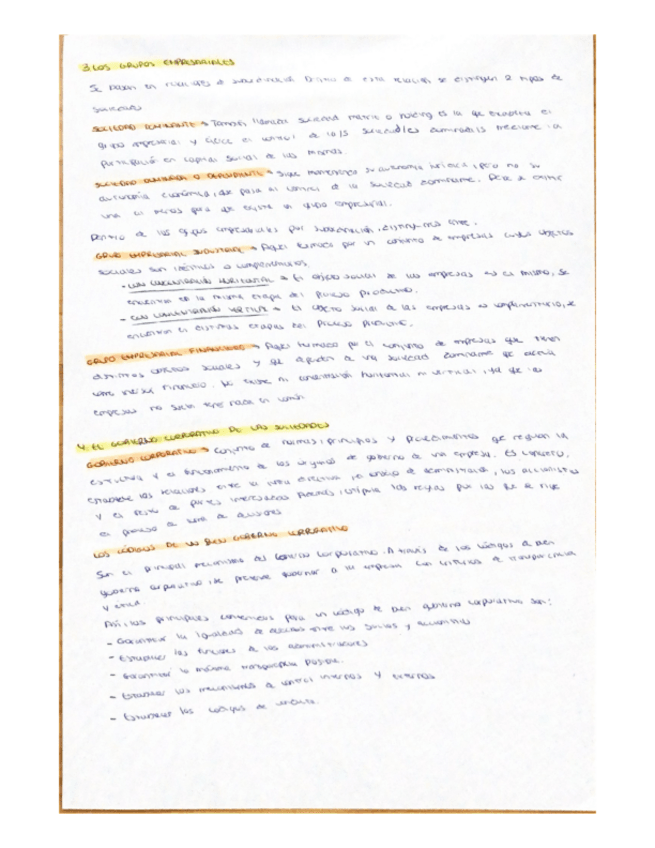 3. LOS GRUPOS EMPRESARIALES
Se basan en relaciones de subordinación. Dentro de esta relación se distinguen 2 tipos de
sociedades
SOCIEDAD DOMINANTE → También llamada sociedad matriz o holding es la que encabeza el
grupo empresarial y ejerce el control de la/s sociedad/es dominada/s mediante la
participación en capital social de las mismas.
SOCIEDAD DOMINADA O DEPENDIENTE → Sigue manteniendo su autonomía jurídica, pero no su
autonomía económica, que pasa al control de la sociedad dominante. Debe de existir
una al menos para que exista un grupo empresarial.
Dentro de los grupos empresariales por subordinación, distinguimos entre:
GRUPO EMPRESARIAL INDUSTRIAL → Aquel formado por un conjunto de empresas cuyos objetos
sociales son idénticos o complementarios.
- CON CONCENTRACIÓN HORIZONTAL → El objeto social de las empresas es el mismo, se
encuentran en la misma etapa del proceso productivo.
- CON CONCENTRACIÓN VERTICAL → El objeto social de las empresas es complementario, se
encuentran en distintas etapas del proceso productivo.
GRUPO EMPRESARIAL FINANCIERO → Aquel formado por el conjunto de empresas que tienen
distintos objetos sociales y que dependen de una sociedad dominante que actúa
como inversor financiero. No existe ni concentración horizontal ni vertical, ya que las
empresas no suelen tener nada en común.
4. EL GOBIERNO CORPORATIVO DE LAS SOCIEDADES
GOBIERNO CORPORATIVO → Conjunto de normas, principios y procedimientos que regulan la
estructura y el funcionamiento de los órganos de gobierno de una empresa. En concreto,
establece las relaciones entre la junta directiva, el consejo de administración, los accionistas
y el resto de partes interesadas y estipula las reglas por las que se rige
el proceso de toma de decisiones
LOS CÓDIGOS DE UN BUEN GOBIERNO CORPORATIVO
Son el principal mecanismo del Gobierno Corporativo. A través de los códigos de buen
gobierno corporativo, se pretende gobernar a la empresa con criterios de transparencia
y ética
Así, los principales contenidos para un código de buen gobierno corporativo son:
- Garantizar la igualdad de derechos entre los socios y accionistas
- Establecer las funciones de los administradores
- Garantizar la máxima transparencia posible.
- Establecer los mecanismos de control internos y externos
- Establecer los códigos de conducta.